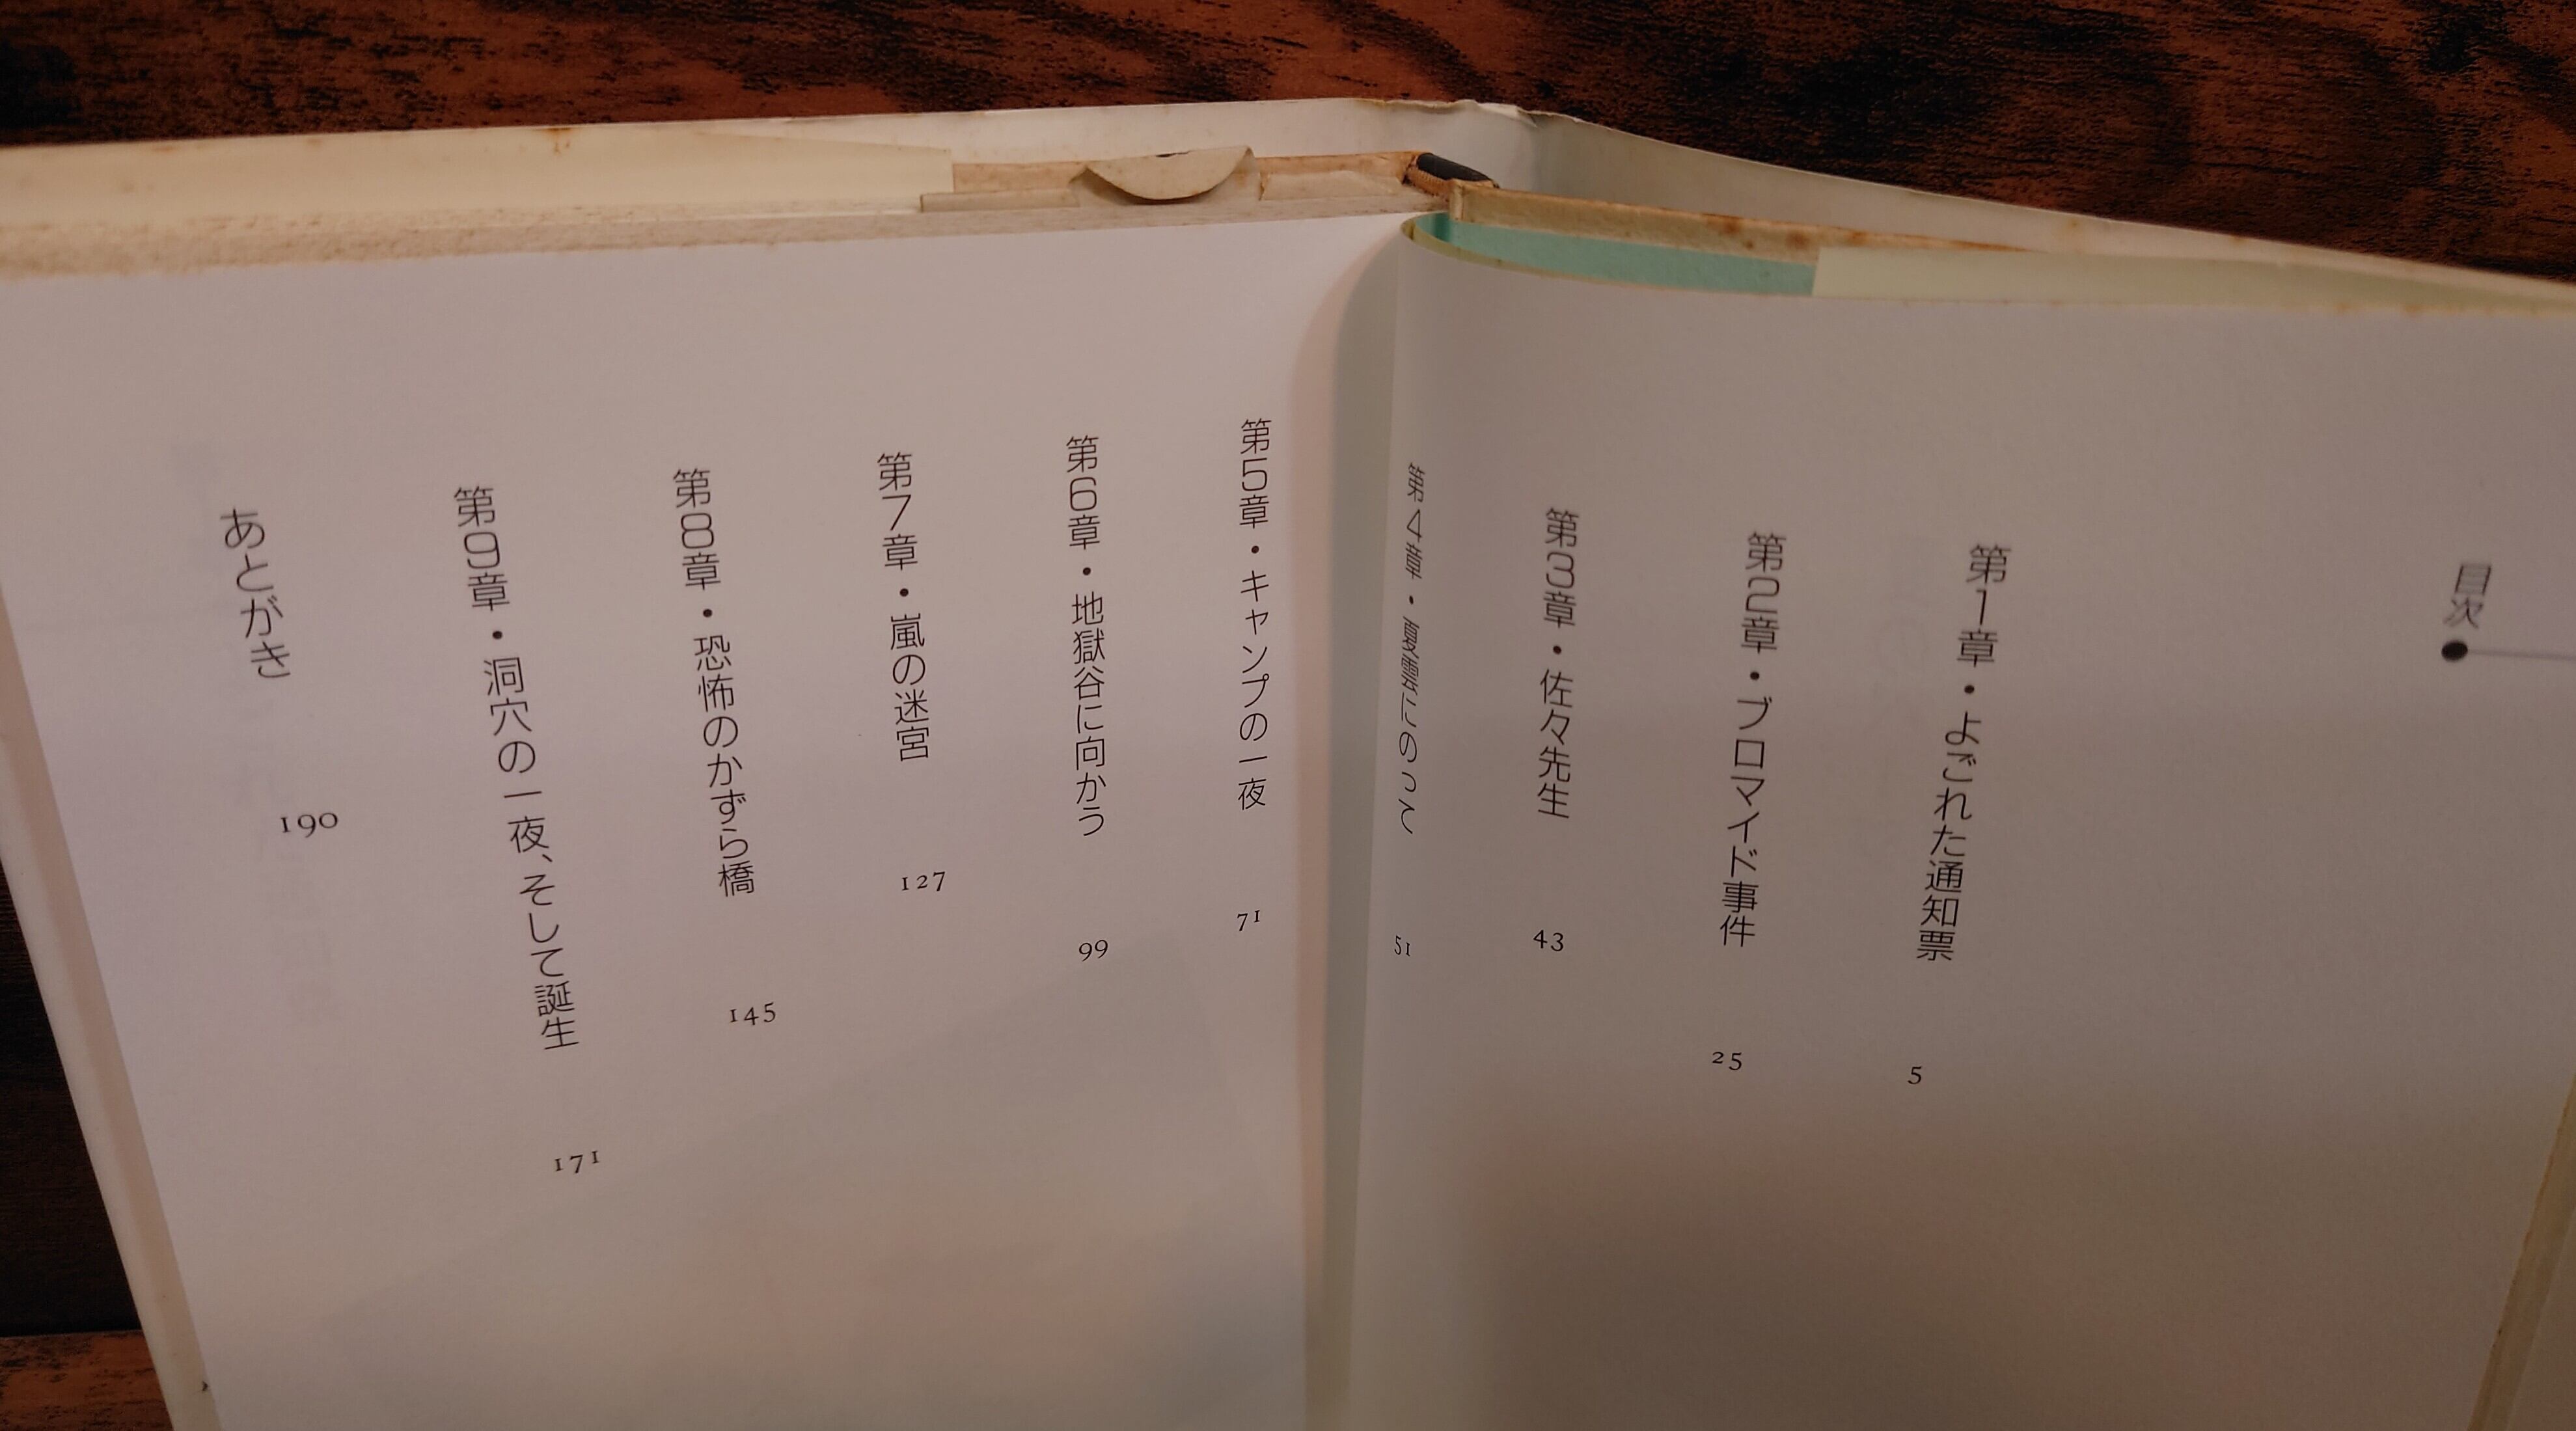 目次
第1章・よごれた通知票 5
第2章・ブロマイド事件 25
第3章・佐々先生 43
第4章・夏雲にのって 51
第5章・キャンプの一夜 71
第6章・地獄谷に向かう 99
第7章・嵐の迷宮 127
第8章・恐怖のかずら橋 145
第9章・洞穴の一夜、そして誕生 171
あとがき 190